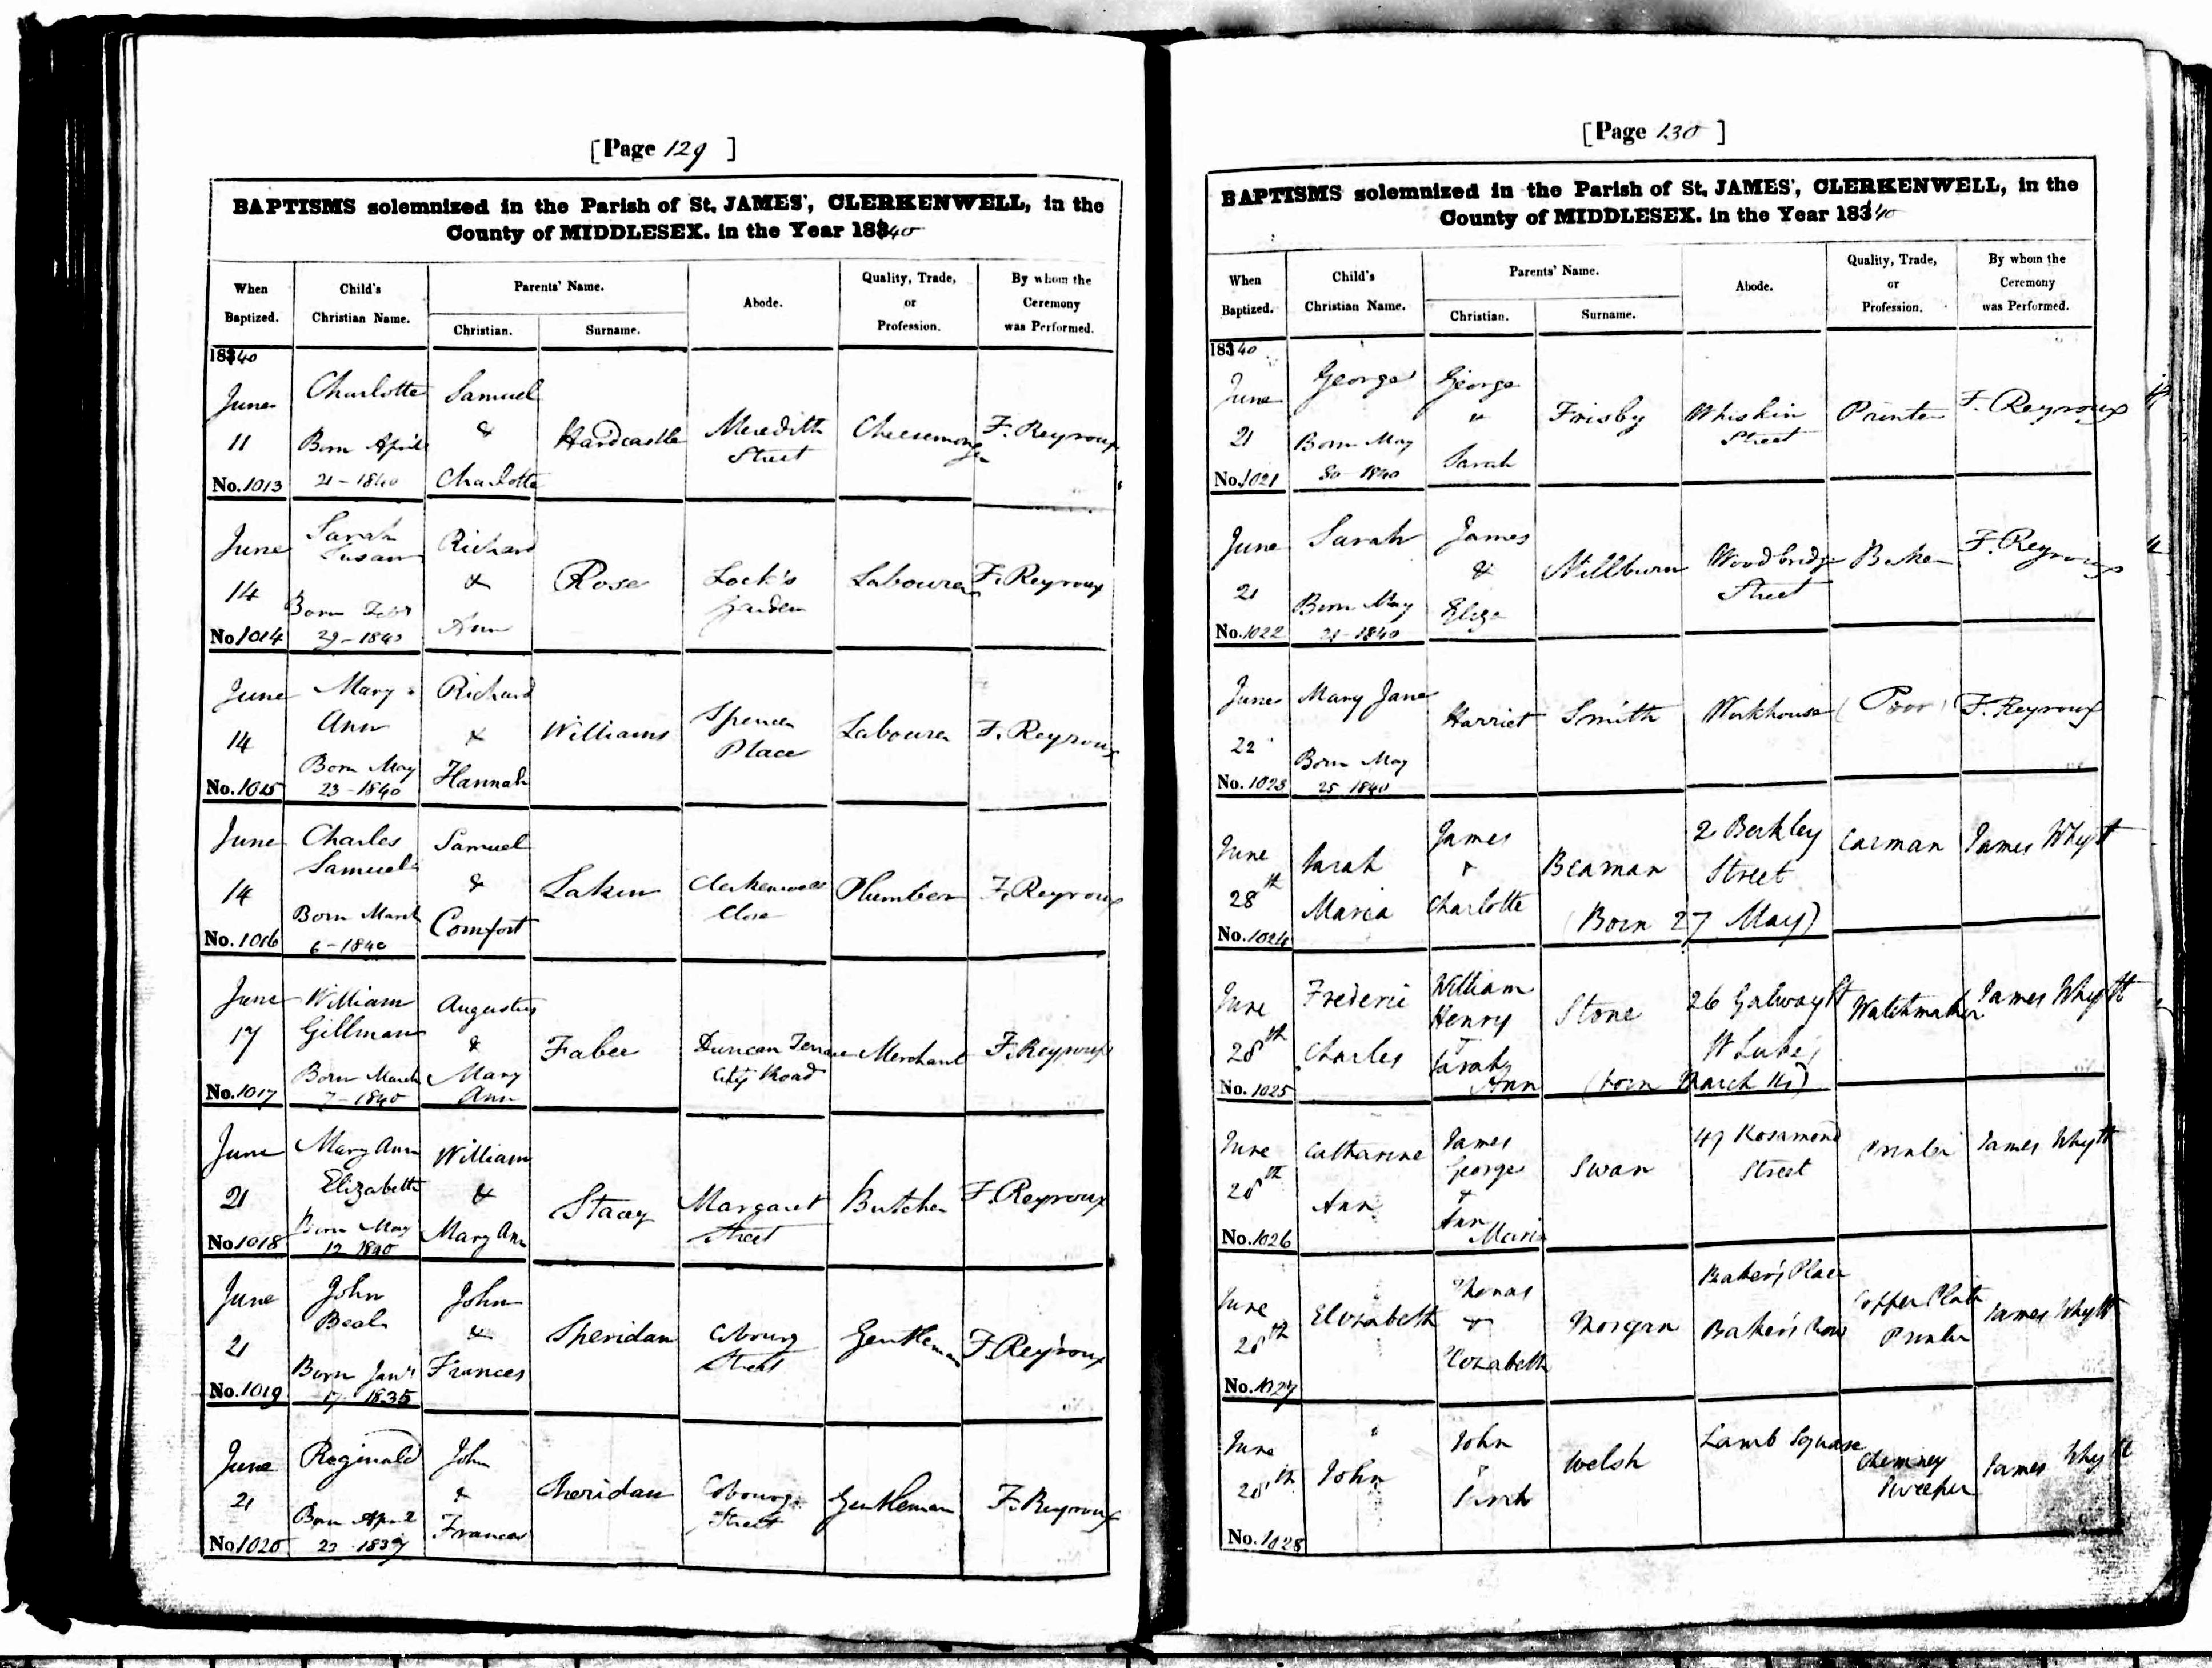 [Page 129 ]
BAPTISMS solemnized in the Parish of St. JAMES', CLERKENWELL, in the
County of MIDDLESEX. in the Year 18340
When
Baptized.
Child's
Christian Name.
Parents' Name.
Christian.
Surname.
Abode.
Quality, Trade,
or
Profession.
By whom the
Ceremony
was Performed.
18340
June
11
No. 1013
Charlotte
Born April
21 - 1840
Samuel
&
Charlotte
Hardcastle
Meredith
Street
Cheesemonger
F. Reyroux
June
14
No 1014
Sarah
Susan
Born Feby
29 - 1840
Richard
&
Ann
Rose
Lock's
Garden
Labourer
F. Reyroux
June
14
No. 1015
Mary
Ann
Born May
23 - 1840
Richard
&
Hannah
Williams
Spencer
Place
Labourer
F. Reyroux
June
14
No. 1016
Charles
Samuel
Born March
6 - 1840
Samuel
&
Comfort
Lakin
Clerkenwell
Close
Plumber
F. Reyroux
June
17
No. 1017
William
Gillman
Born March
7 - 1840
Augustus
&
Mary
Ann
Faber
Duncan Terrace
City Road
Merchant
F. Reyroux
June
21
No 1018
Mary Ann
Elizabeth
Born May
12 1840
William
&
Mary Ann
Stacey
Margaret
Street
Butcher
F. Reyroux
June
21
No. 1019
John
Beal
Born Jany
17 1835
John
&
Frances
Sheridan
Cobourg
Street
Gentleman
F. Reyroux
June
21
No 1020
Reginald
Born April
23 1839
John
&
Frances
Sheridan
Cobourg
Street
Gentleman
F. Reyroux
[Page 130 ]
BAPTISMS solemnized in the Parish of St. JAMES', CLERKENWELL, in the
County of MIDDLESEX. in the Year 18340
When
Baptized.
Child's
Christian Name.
Parents' Name.
Christian.
Surname.
Abode.
Quality, Trade,
or
Profession.
By whom the
Ceremony
was Performed.
18340
June
21
No. 1021
George
Born May
30 - 1840
George
&
Sarah
Frisby
Whiskin
Street
Printer
F. Reyroux
June
21
No. 1022
Sarah
Born May
21 - 1840
James
&
Eliza
Millburn
Woodbridge
Street
Baker
F. Reyroux
June
22
No. 1023
Mary Jane
Born May
25 1840
Harriet
Smith
Workhouse
(Poor)
F. Reyroux
June
28th
No. 1024
Sarah
Maria
James
+
Charlotte
Beaman
2 Berkley
Street
(Born 27 May)
Carman
James Whytt
June
28th
No. 1025
Frederic
Charles
William
Henry
+
Sarah
Ann
Stone
26 Galway St
St Luke's
(born March 14)
Watchmaker
James Whytt
June
28th
No. 1026
Catharine
Ann
James
George
+
Ann
Maria
Swan
49 Rosamond
Street
Printer
James Whytt
June
28th
No. 1027
Elizabeth
Thomas
+
Elizabeth
Morgan
Baker's Place
Baker's Row
Copper Plate
Printer
James Whytt
June
28th
No. 1028
John
John
+
Sarah
Welsh
Lamb Square
Chimney
Sweeper
James Whytt